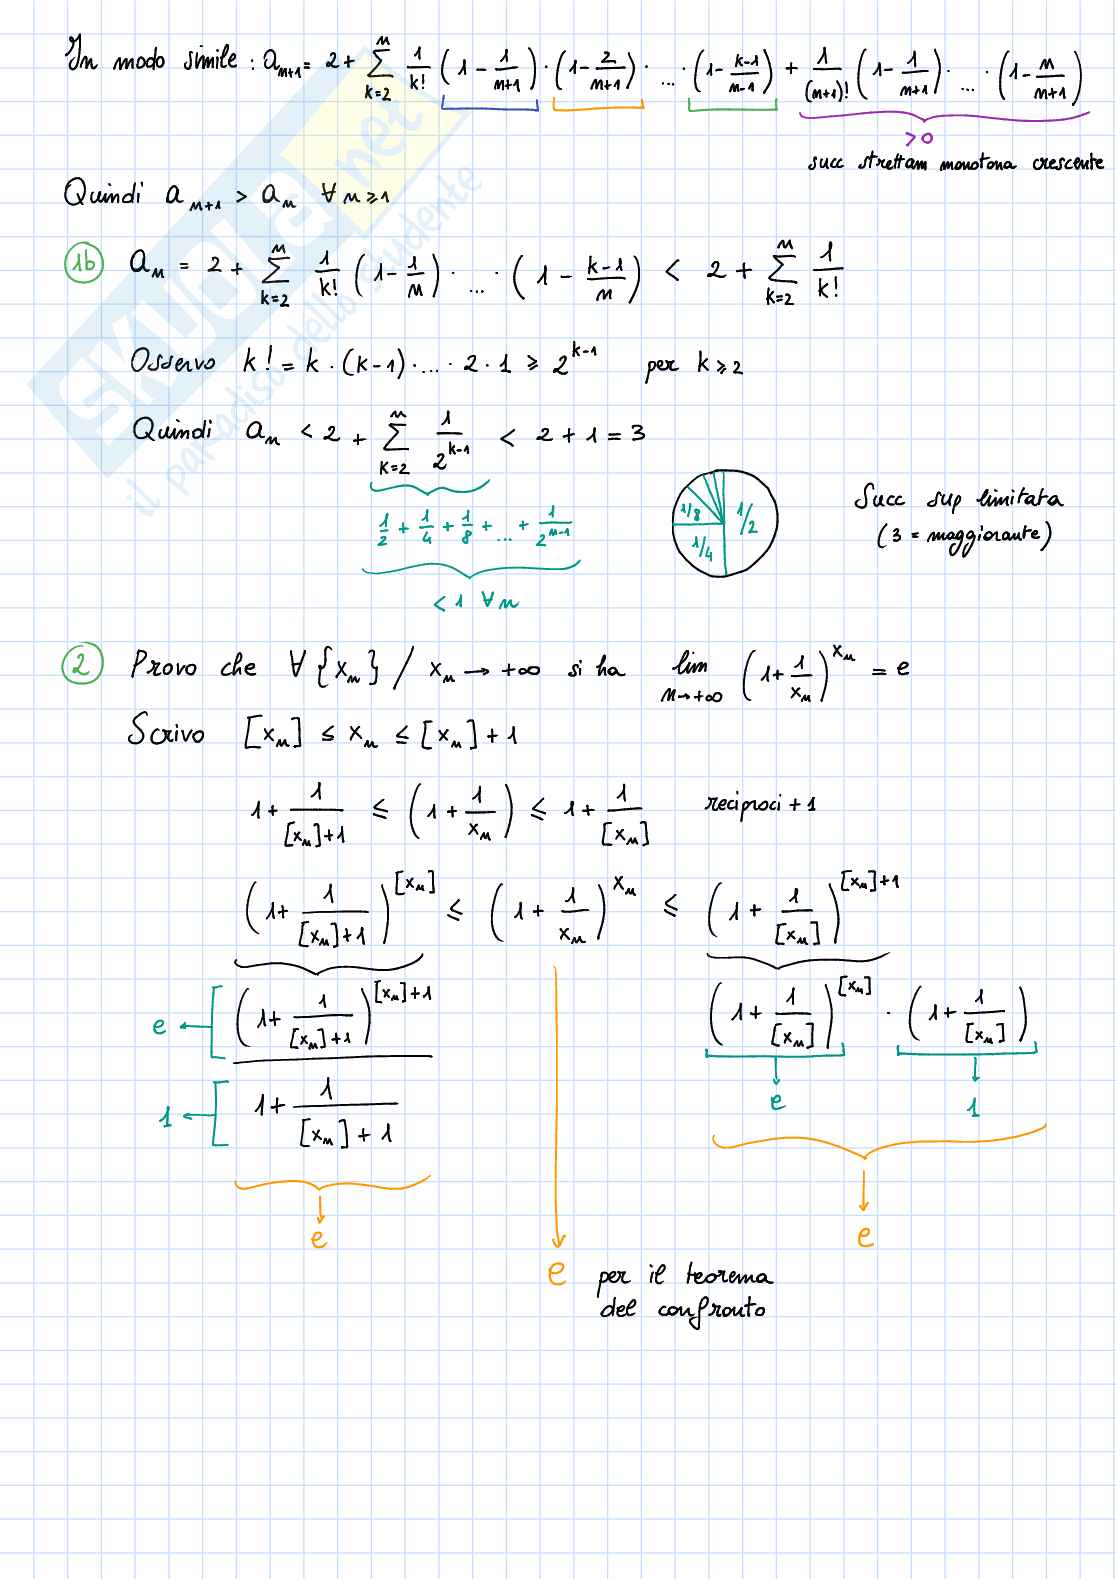 In modo simile : a_{n+1} = 2 + \sum_{k=2}^{n} \frac{1}{k!} (1 - \frac{1}{n+1}) · (1 - \frac{2}{n+1}) · ... · (1 - \frac{k-1}{n-1}) + \frac{1}{(n+1)!} (1 - \frac{1}{n+1}) · ... · (1 - \frac{n}{n+1})
>0
succ strettam monotona crescente
Quindi a_{n+1} > a_n ∀ n ≥ 1
1b a_n = 2 + \sum_{k=2}^{n} \frac{1}{k!} (1 - \frac{1}{n}) · ... · (1 - \frac{k-1}{n}) < 2 + \sum_{k=2}^{n} \frac{1}{k!}
Osservo k! = k · (k-1) · ... · 2 · 1 ≥ 2^{k-1} per k ≥ 2
Quindi a_n < 2 + \sum_{k=2}^{n} \frac{1}{2^{k-1}} < 2 + 1 = 3
\frac{1}{2} + \frac{1}{4} + \frac{1}{8} + ... + \frac{1}{2^{n-1}}
< 1 ∀ n
1/8 1/2
1/4
Succ sup limitata
(3 = maggiorante)
2 Provo che ∀ {x_n} / x_n → +∞ si ha lim_{n→+∞} (1 + \frac{1}{x_n})^{x_n} = e
Scrivo [x_n] ≤ x_n ≤ [x_n] + 1
1 + \frac{1}{[x_n]+1} ≤ (1 + \frac{1}{x_n}) ≤ 1 + \frac{1}{[x_n]} reciproci + 1
(1 + \frac{1}{[x_n]+1})^{[x_n]} ≤ (1 + \frac{1}{x_n})^{x_n} ≤ (1 + \frac{1}{[x_n]})^{[x_n]+1}
e ← (1 + \frac{1}{[x_n]+1})^{[x_n]+1} (1 + \frac{1}{[x_n]})^{[x_n]} · (1 + \frac{1}{[x_n]})
1 ← 1 + \frac{1}{[x_n] + 1} e 1
e e
e per il teorema
del confronto
SKUOLA.net
il paradiso dello studente